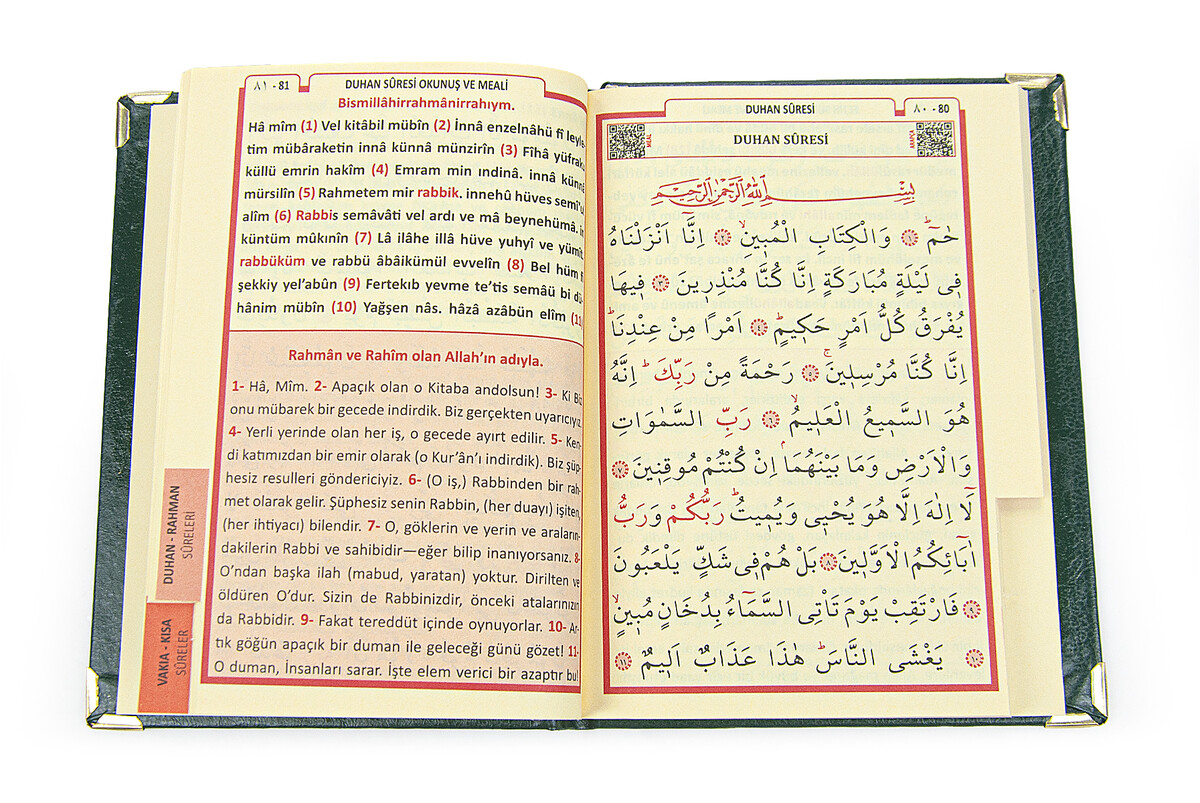 ٨١ - 81
DUHAN SÛRESİ OKUNUŞ VE MEALİ
Bismillâhirrahmânirrahıym.
Hâ mîm (1) Vel kitâbil mübîn (2) İnnâ enzelnâhü fî leyle-
tim mübâraketin innâ künnâ münzirîn (3) Fîhâ yüfraku
küllü emrin hakîm (4) Emram min ındinâ. innâ künnâ
mürsilîn (5) Rahmetem mir rabbik. innehû hüves semî'ul
alîm (6) Rabbis semâvâti vel ardı ve mâ beynehümâ. in
küntüm mûkınîn (7) Lâ ilâhe illâ hüve yuhyî ve yümît.
rabbüküm ve rabbü âbâikümül evvelîn (8) Bel hüm fî
şekkiy yel'abûn (9) Fertekıb yevme te'tis semâü bi dü-
hânim mübîn (10) Yağşen nâs. hâzâ azâbün elîm (11)
Rahmân ve Rahîm olan Allah'ın adıyla.
1- Hâ, Mîm. 2- Apaçık olan o Kitaba andolsun! 3- Ki Biz
onu mübarek bir gecede indirdik. Biz gerçekten uyarıcıyız.
4- Yerli yerinde olan her iş, o gecede ayırt edilir. 5- Ken-
di katımızdan bir emir olarak (o Kur'ân'ı indirdik). Biz şüp-
hesiz resulleri göndericiyiz. 6- (O iş,) Rabbinden bir rah-
met olarak gelir. Şüphesiz senin Rabbin, (her duayı) işiten,
(her ihtiyacı) bilendir. 7- O, göklerin ve yerin ve araların-
dakilerin Rabbi ve sahibidir—eğer bilip inanıyorsanız. 8-
O'ndan başka ilah (mabud, yaratan) yoktur. Dirilten ve
öldüren O'dur. Sizin de Rabbinizdir, önceki atalarınızın
da Rabbidir. 9- Fakat tereddüt içinde oynuyorlar. 10- Ar-
tık göğün apaçık bir duman ile geleceği günü gözet! 11-
O duman, İnsanları sarar. İşte elem verici bir azaptır bu!
DUHAN - RAHMAN
SÛRELERİ
VAKIA - KISA
SÛRELER
DUHAN SÛRESİ
٨٠ - 80
MEAL
DUHAN SÛRESİ
ARAPÇA
بِسْمِ اللّٰهِ الرَّحْمٰنِ الرَّحِيمِ
حٰمٓ ۛ ﴿١﴾ وَالْكِتَابِ الْمُبٖينِۙ ﴿٢﴾ اِنَّٓا اَنْزَلْنَاهُ
فٖي لَيْلَةٍ مُبَارَكَةٍ اِنَّا كُنَّا مُنْذِرٖينَ ﴿٣﴾ فٖيهَا
يُفْرَقُ كُلُّ اَمْرٍ حَكٖيمٍۙ ﴿٤﴾ اَمْرًا مِنْ عِنْدِنَاۜ
اِنَّا كُنَّا مُرْسِلٖينَۚ ﴿٥﴾ رَحْمَةً مِنْ رَبِّكَۜ اِنَّهُ
هُوَ السَّمٖيعُ الْعَلٖيمُۙ ﴿٦﴾ رَبِّ السَّمٰوَاتِ
وَالْاَرْضِ وَمَا بَيْنَهُمَاۢ اِنْ كُنْتُمْ مُوقِنٖينَ ﴿٧﴾
لَٓا اِلٰهَ اِلَّا هُوَ يُحْيٖي وَيُمٖيتُۜ رَبُّكُمْ وَرَبُّ
اٰبَٓائِكُمُ الْاَوَّلٖينَ ﴿٨﴾ بَلْ هُمْ فٖي شَكٍّ يَلْعَبُونَ
﴿٩﴾ فَارْتَقِبْ يَوْمَ تَأْتِي السَّمَٓاءُ بِدُخَانٍ مُبٖينٍۙ
﴿١٠﴾ يَغْشَى النَّاسَۜ هٰذَا عَذَابٌ اَلٖيمٌ ﴿١١﴾